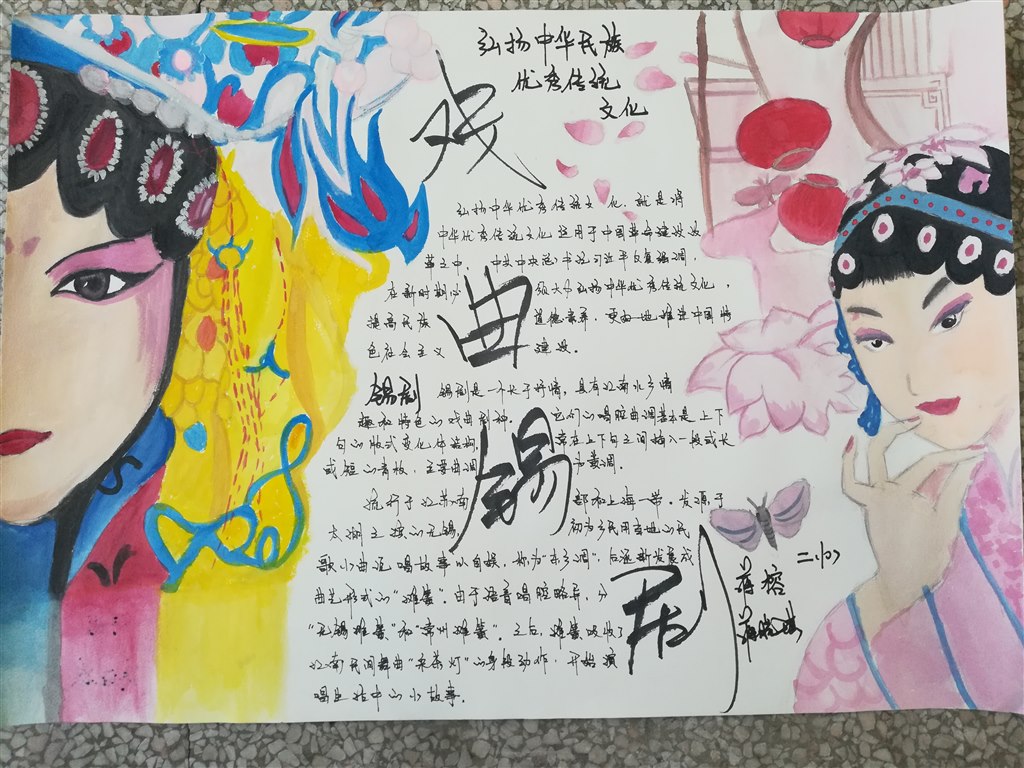 弘扬中华民族
优秀传统
文化
戏曲锡剧
弘扬中华优秀传统文化，就是将
中华优秀传统文化运用于中国革命建设改
革之中 中共中央总书记习近平反复强调，
在新时期必 须大力弘扬中华优秀传统文化，
提高民族 道德素养，更好地推进中国特
色社会主义 建设。
锡剧 锡剧是一个长于抒情，具有江南水乡情
趣和特色的戏曲剧种。 它们的唱腔曲调基本是上下
句的板式变化体结构， 常在上下句之间插入一段或长
或短的清板，主要曲调 为簧调。
流行于江苏南 部和上海一带。发源于
太湖之滨的无锡， 初为乡民用当地的民
歌小曲说唱故事以自娱，称为"东乡调"，后逐渐发展成
曲艺形式的"滩簧"。由于语音唱腔略异，分
"无锡滩簧"和"常州滩簧"。之后，滩簧吸收了
江南民间舞曲"采茶灯"的身段动作，开始演
唱生活中的小故事。
蒋榕